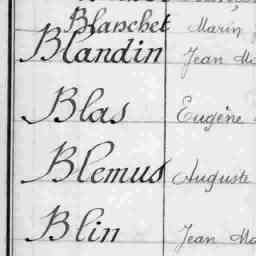 Blanchet Marin
Blandin Jean Ma
Blas Eugène
Blemus Auguste
Blin Jean Ma